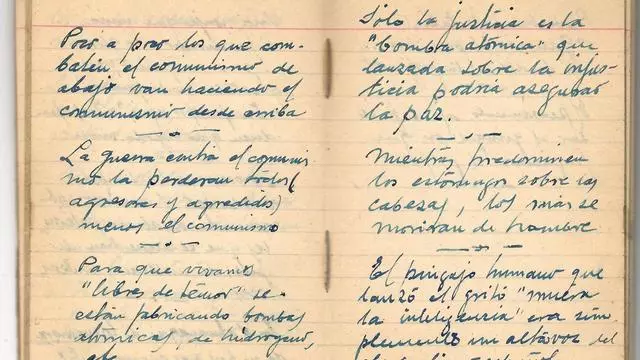 Poco a poco los que com-
baten el comunismo de
abajo van haciendo el
comunismo desde arriba
La guerra contra el comunis-
mo la perderan todos (
agresores y agredidos)
menos el comunismo
Para que vivamos
"libres de temor" se
están fabricando bombas
atómicas de hidrogeno,
etc.
Sólo la justicia es la
"bomba atómica" que
lanzada sobre la injus-
ticia podria asegurar
la paz.
Mientras predominen
los estómagos sobre las
cabezas, los más se
moriran de hambre
El pingajo humano que
lanzó el grito "muera
la inteligencia" era sim-
plemente un altavoz del